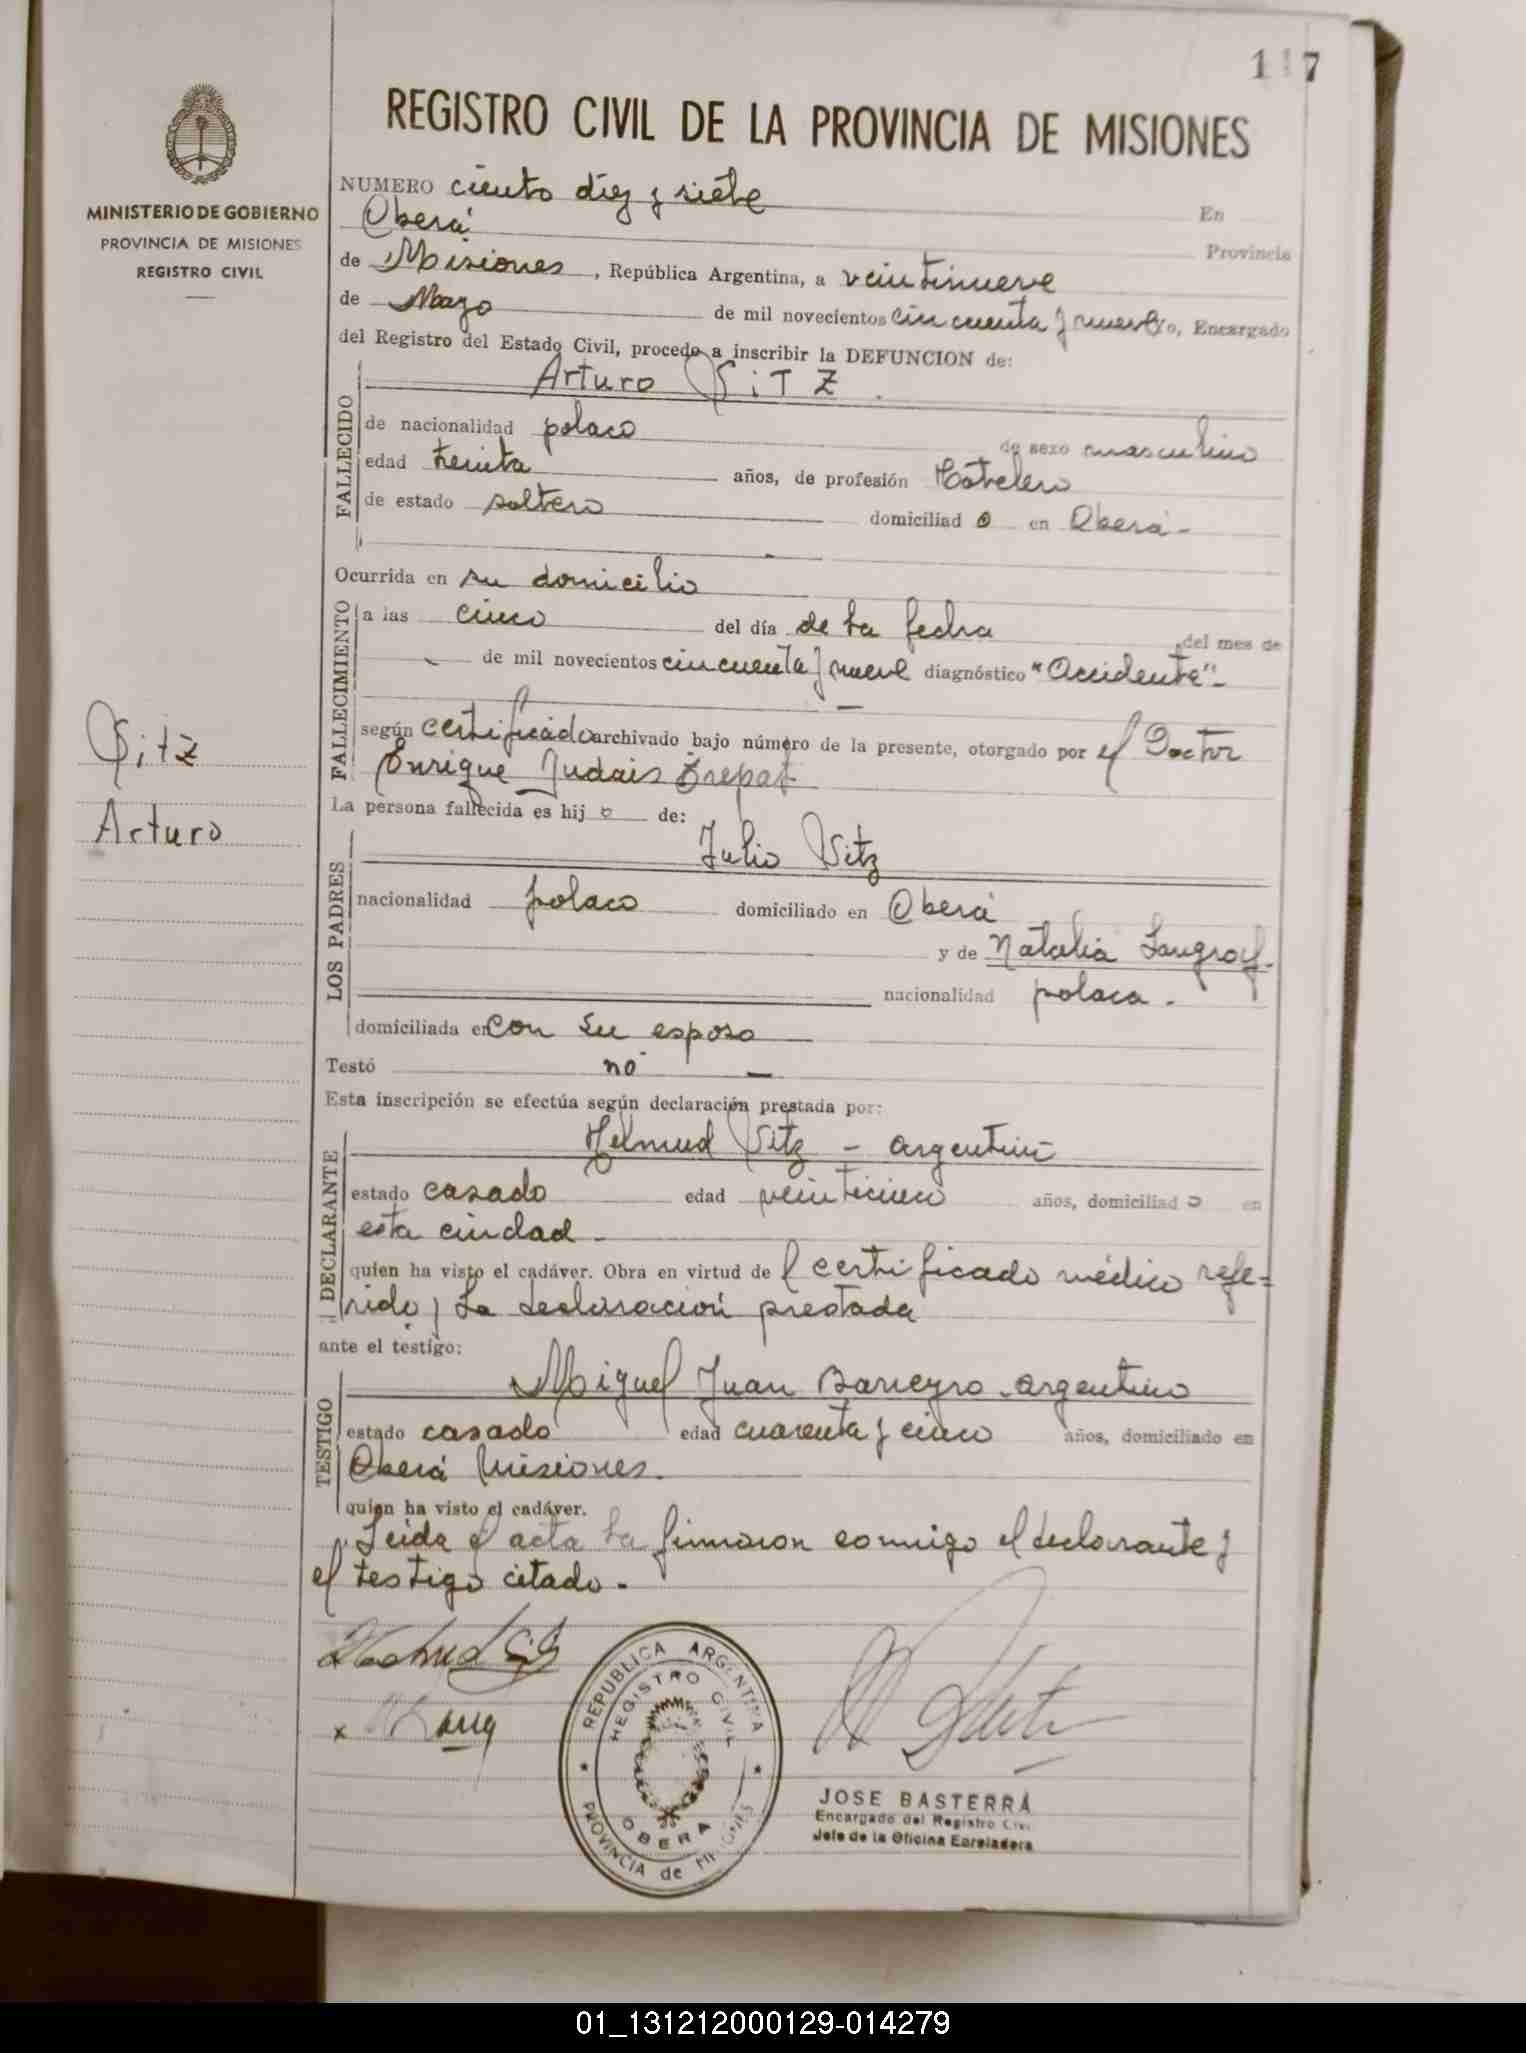 117
REGISTRO CIVIL DE LA PROVINCIA DE MISIONES
MINISTERIO DE GOBIERNO
PROVINCIA DE MISIONES
REGISTRO CIVIL
NUMERO ciento diez y siete En
Oberá Provincia
de Misiones, República Argentina, a veintinueve
de Mayo de mil novecientos cincuenta y nueve yo, Encargado
del Registro del Estado Civil, procedo a inscribir la DEFUNCION de:
Arturo SiTZ.
FALLECIDO
de nacionalidad polaco de sexo masculino
edad treinta años, de profesión Hotelero
de estado soltero domiciliad o en Oberá-
Ocurrida en su domicilio
FALLECIMIENTO
a las cinco del día de la fecha del mes de
de mil novecientos cincuenta y nueve diagnóstico "Accidente"-
según certificado archivado bajo número de la presente, otorgado por el Doctor
Enrique
Sitz
Arturo
La persona fallecida es hij o de:
LOS PADRES
Julio Sitz
nacionalidad polaco domiciliado en Oberá
y de Natalia Langraf.
nacionalidad polaca.
domiciliada en con su esposo
Testó no
Esta inscripción se efectúa según declaración prestada por:
DECLARANTE
Helmud Sitz - argentino
estado casado edad veinticinco años, domiciliad o en
esta ciudad-
quien ha visto el cadáver. Obra en virtud del certificado médico refe=
rido y la declaración prestada
ante el testigo:
TESTIGO
Miguel Juan Barreyro argentino
estado casado edad cuarenta y cinco años, domiciliado en
Oberá Misiones.
quien ha visto el cadáver.
Leida el acta la firmaron conmigo el declarante y
el testigo citado-
REPUBLICA ARGENTINA
REGISTRO CIVIL
OBERA
PROVINCIA de MISIONES
JOSE BASTERRA
Encargado del Registro Civil
Jefe de la Oficina Enroladora
01_131212000129-014279